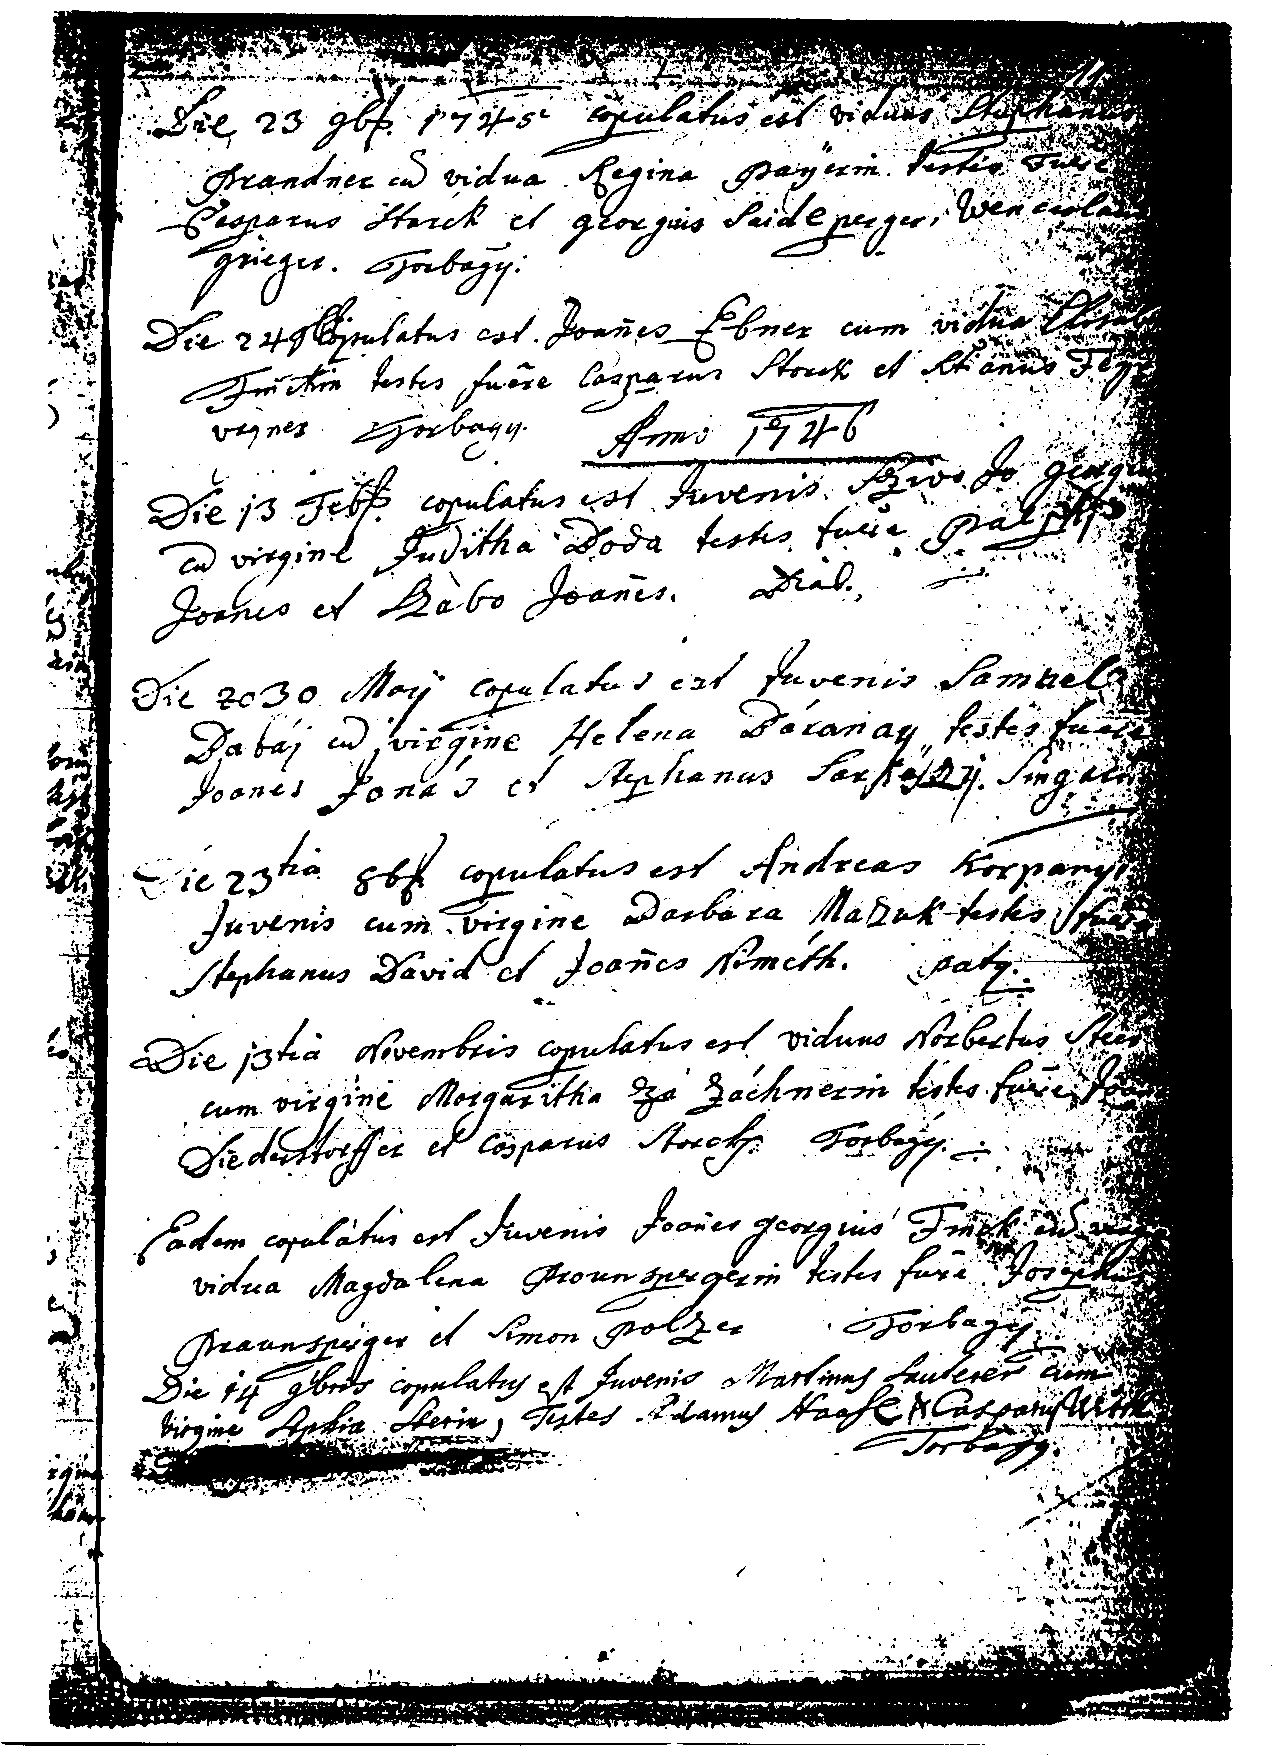 Die 23 9bṛ. 1745 copulatus est viduus Stephanus
Prandner cū vidua Regina Payerin testes fuere
Casparus Storck et georgius Saideperger,
grieger. Torbagÿ.
Die 24 copulatus est Joan̄es Ebner cum vidua
testes fuēre Casparus Storck et
Torbagÿ.
Anno 1746
Die 13 Febr. copulatus est Juvenis Jo
cū virgine Juditha Doda testes fuere
Joan̄es et Szabo Joan̄es. Diad.
Die 30 Maÿ copulatus est Juvenis Samuel
Dabaj cū virgine Helena Daranay testes fuere
Joanes Jonás et Stephanus
Die 23tia 8br. copulatus est Andreas Korpany
Juvenis cum virgine Barbara Mazuk testes fuere
Stephanus David et Joan̄es Németh. paty.
Die 13tia Novembris copulatus est viduus Norbertus
cum virgine Margaritha Záchnerin testes fuēre
Diederstorffer et Casparus Storck. Torbagÿ.
Eadem copulatus est Juvenis Joan̄es georgius Finck cū
vidua Magdalena Praunspergerin testes fuēre Josephus
Praunsperger et Simon polzer Torbagÿ
Die 14 9bris copulatus est Juvenis Martinus Lauterer cum
virgine Sophia Sterin, Testes Adamus Haas & Casparus
Torbagÿ.